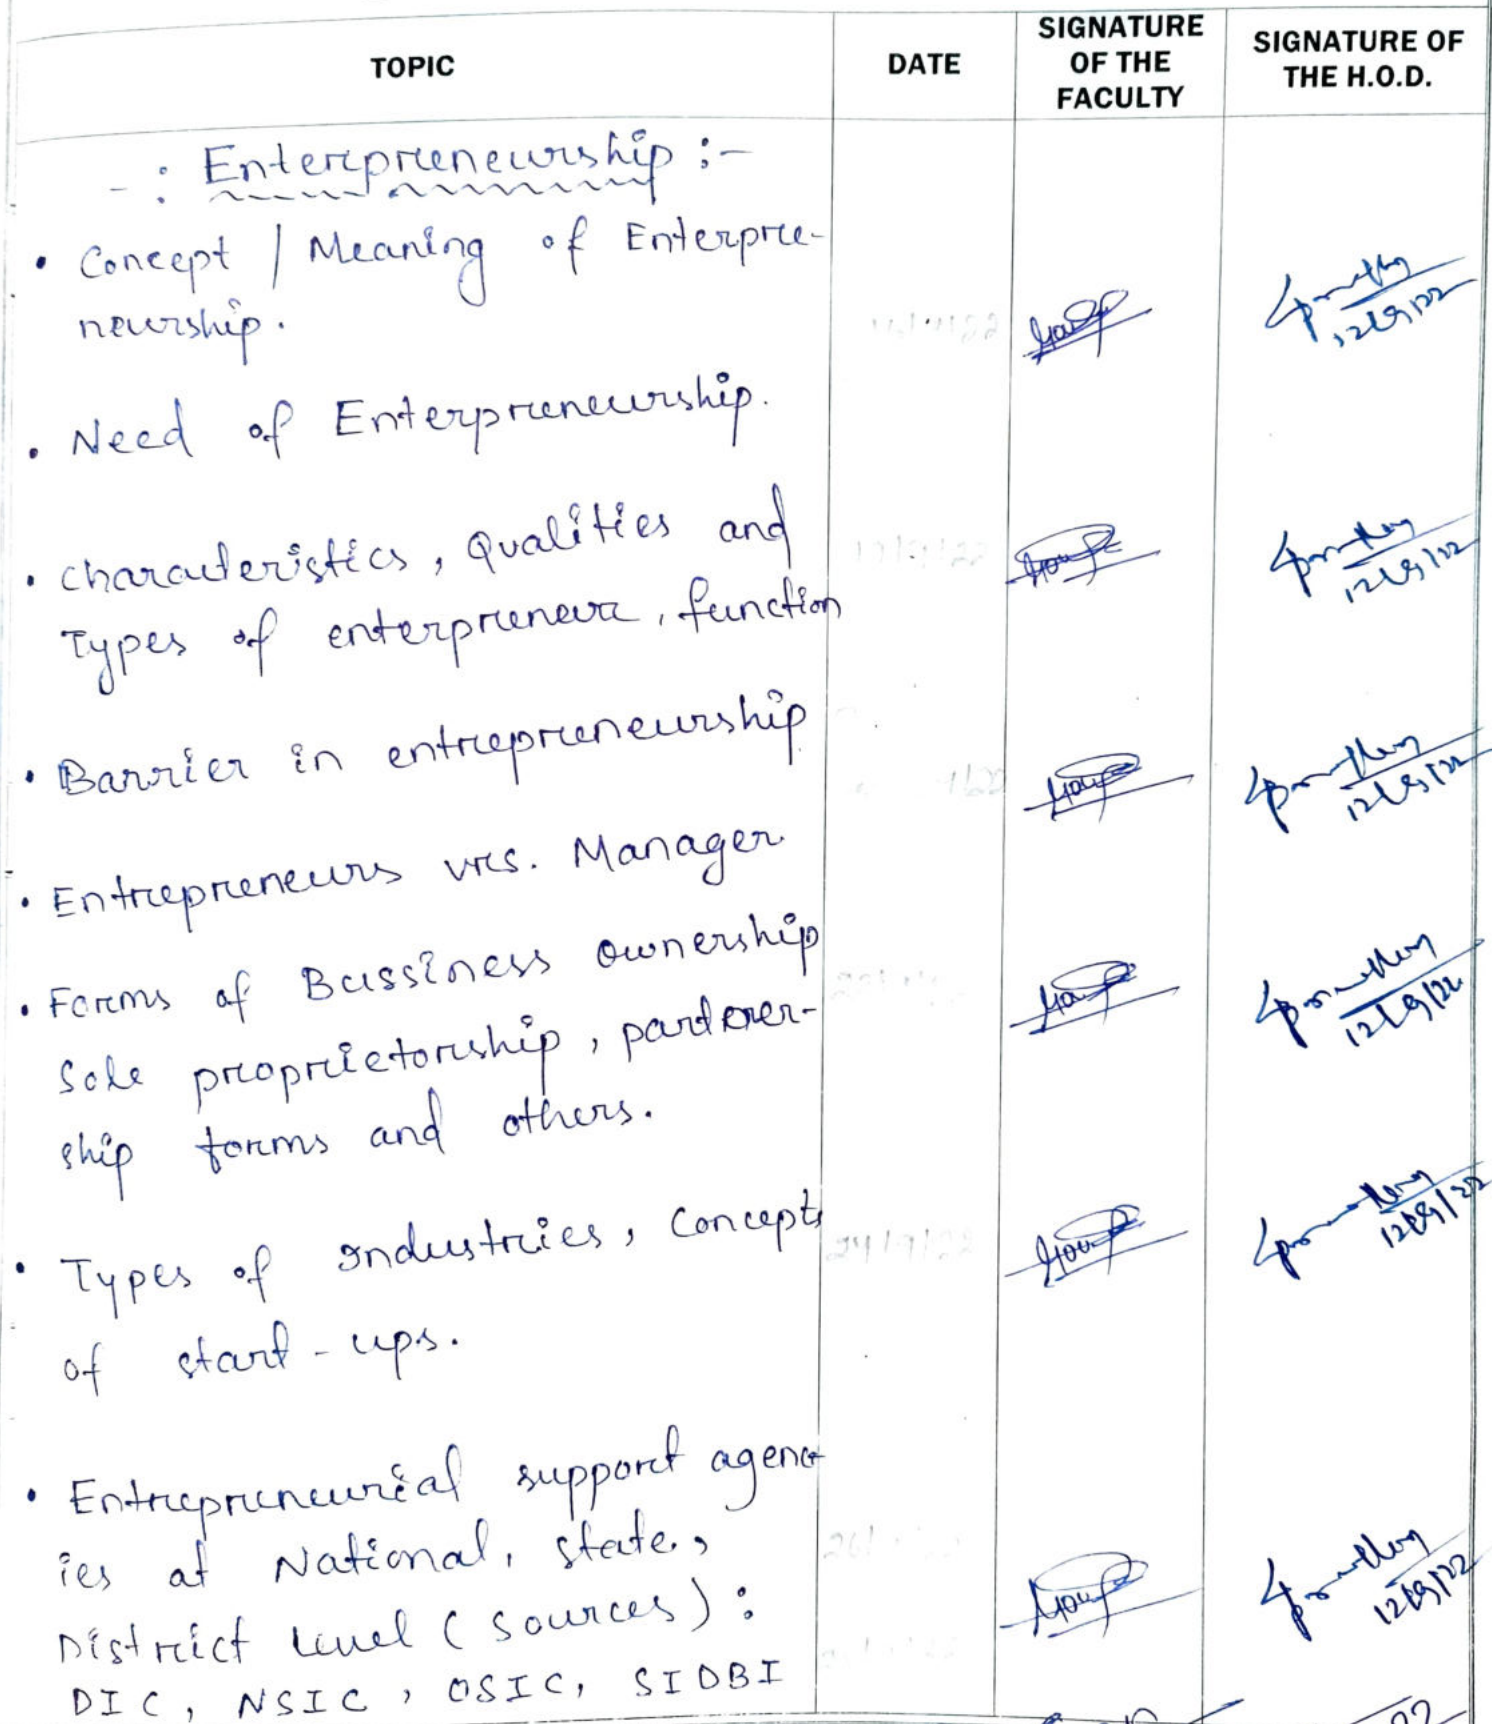 TOPIC
DATE
SIGNATURE
OF THE
FACULTY
SIGNATURE OF
THE H.O.D.
-: Enterpreneurship :-
• Concept / Meaning of Enterpre-
neurship.
12/09/22
• Need of Enterpreneurship.
• Characteristics, Qualities and
Types of enterpreneur, function
12/09/22
• Barrier in entrepreneurship
12/09/22
• Entrepreneurs vrs. Manager
• Forms of Bussiness ownership
Sole proprietorship, partner-
ship forms and others.
12/09/22
• Types of Industries, Concepts
of start-ups.
12/09/22
• Entrepreneurial support agenc-
ies at National, State,
District level (Sources):
DIC, NSIC, OSIC, SIDBI
12/09/22